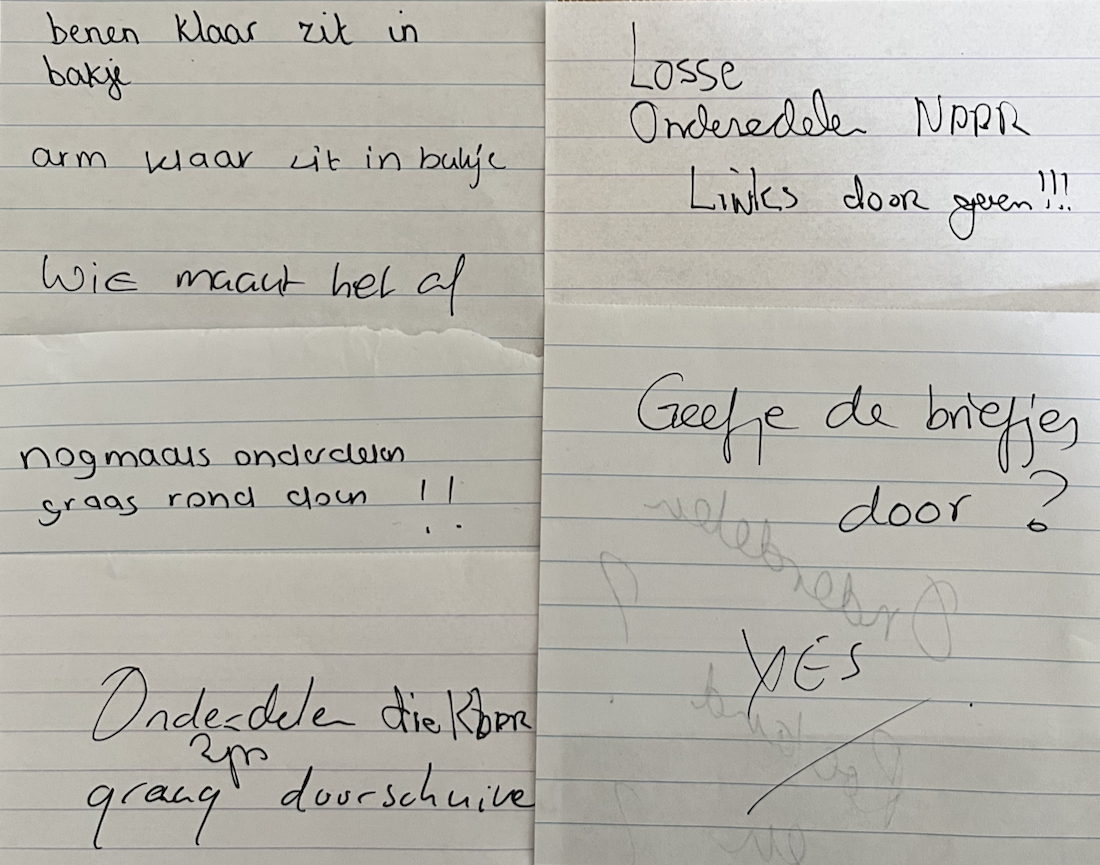 benen klaar zit in
bakje
arm klaar zit in bakje
Wie maakt het af
nogmaals onderdelen
graag rond doen !!
Onderdelen die
graag doorschuive
Losse
Onderedelen NAAR
Links door geven!!!
Geef je de briefjes
door ?
YES
Onderdelen